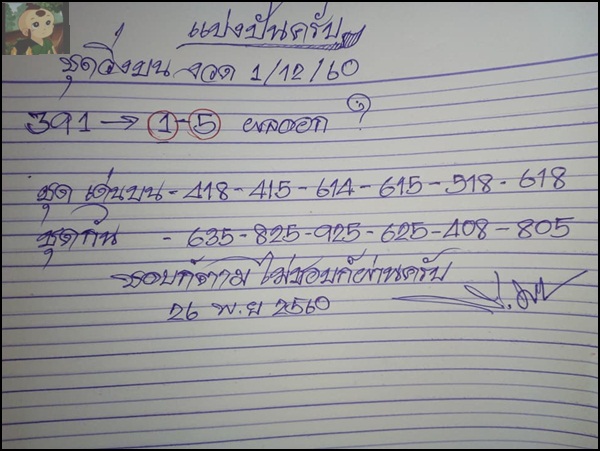 แบ่งปันครับ
ชุดวิ่งบน งวด 1/12/60
391 → 1-5 ผลออก ?
ชุด เด่นบน - 418 - 415 - 614 - 615 - 518 - 618
ชุดกัน - 635 - 825 - 925 - 625 - 408 - 805
ชอบก็ตาม ไม่ชอบก็ผ่านครับ
26 พ.ย 2560